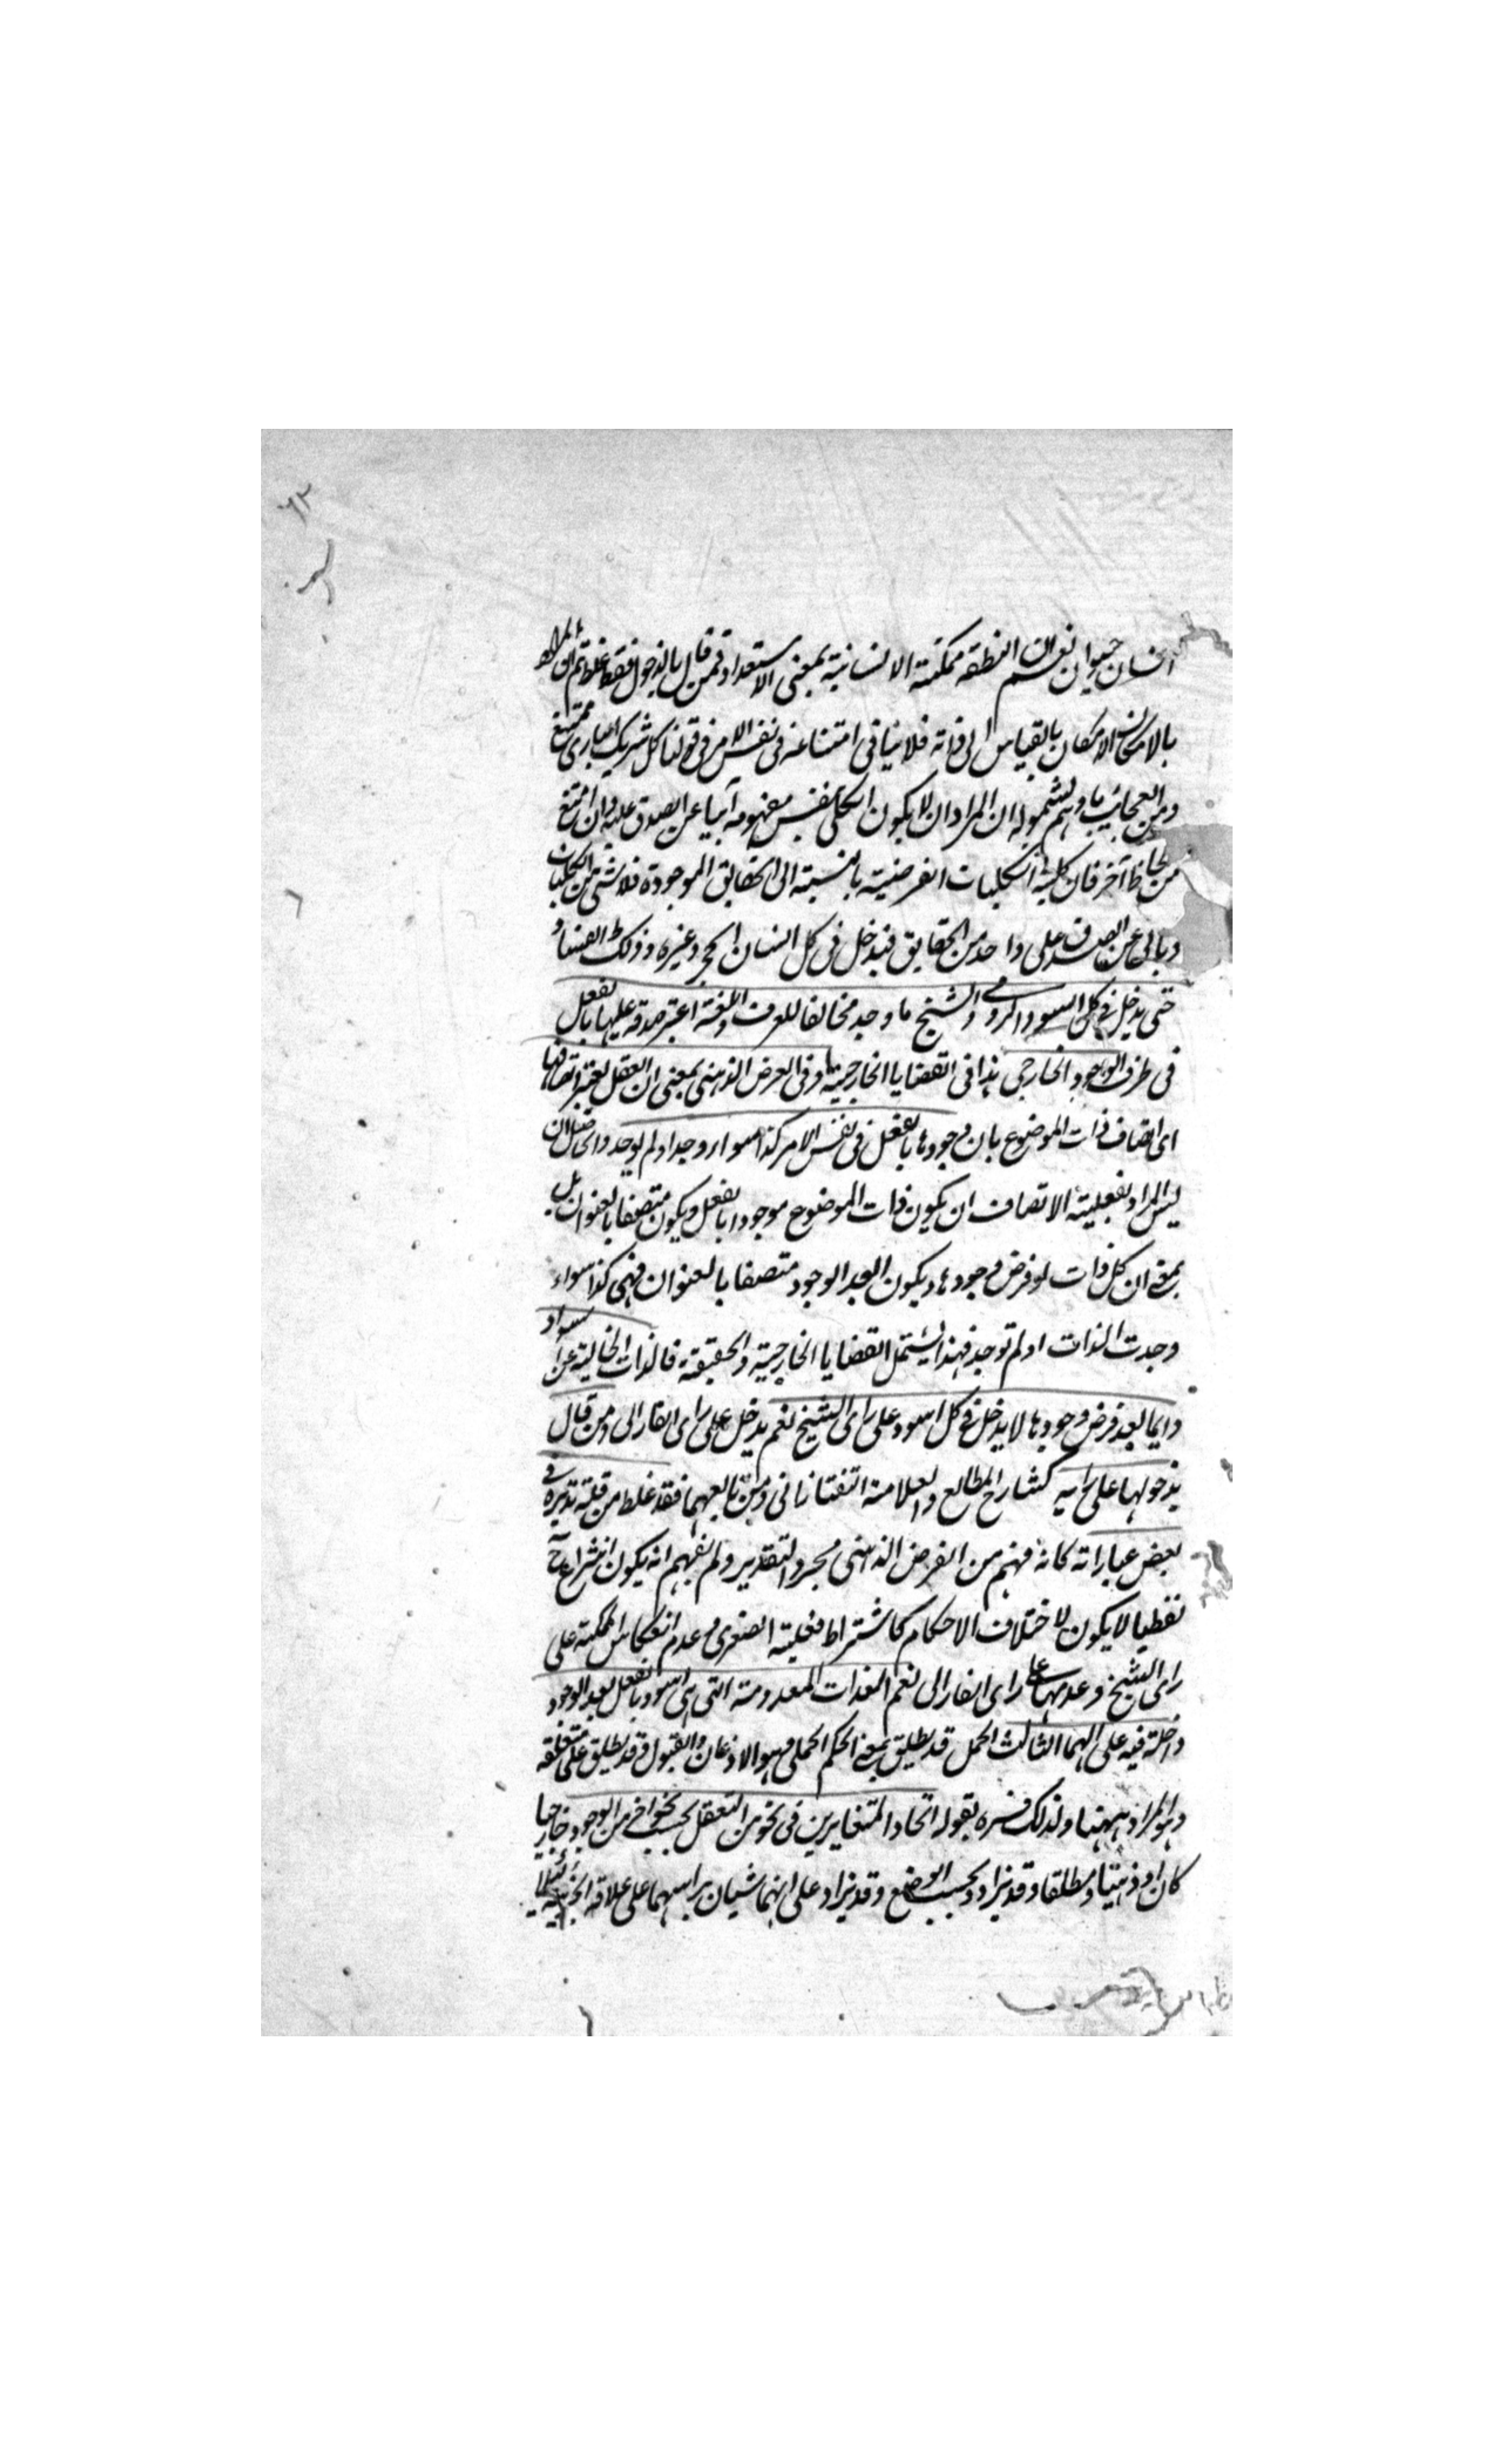 ٦٢
انسان حيوان نعم ان النطفة ممكنة الانسانية بمعنى الاستعداد فمن قال بالدخول فقد غلط ثم ان المراد
بالامكان الامكان بالقياس الى ذاته فلا ينافى امتناعه فى نفس الامر فى قولنا كل شريك البارى ممتنع
ومن العجائب ما وهم بشموله ان المراد ان لا يكون الكلى بنفس مفهومه آبيا عن الصدق عليه وان امتنع
من لحاظ آخر فان كلية الكليات الفرضية بالنسبة الى الحقايق الموجودة فلا شى من الكليات
يابى عن الصدق على واحد من الحقايق فيدخل فى كل انسان الحجر وغيره وذلك الفساد
حتى يدخل فى كل اسود الرومى والشيخ ما وجد مخالفا للعرف واللغة اعتبر صدقه عليها بالفعل
فى ظرف الوجود الخارجى هذا فى القضايا الخارجية او فى الفرض الذهنى بمعنى ان العقل يعتبر اتصافها
اى اتصاف ذات الموضوع بان وجودها بالفعل فى نفس الامر كذا سواء وجد او لم يوجد والحاصل ان
ليس المراد بفعلية الاتصاف ان يكون ذات الموضوع موجودا بالفعل ويكون متصفا بالعنوان بل
بمعنى ان كل ذات لو فرض وجودها ويكون بعد الوجود متصفا بالعنوان فهى كذا سواء
وجدت الذات او لم توجد فهذا يشتمل القضايا الخارجية والحقيقة فالذات الخالية عن سواد
دايما بعد فرض وجودها لا يدخل فى كل اسود على راى الشيخ نعم يدخل على راى الفارابى ومن قال
بدخولها على رايه كشارح المطالع والعلامة التفتازانى ومن تابعهما فقد غلط من قلة تدبره فى
بعض عباراته كانه فهم من الفرض الذهنى مجرد التقدير ولم يفهم انه يكون النزاع ح
لفظيا لا يكون لاختلاف الاحكام كاشتراط فعلية الصغرى وعدم انعكاس الممكنة على
راى الشيخ وعدمهما على راى الفارابى نعم الذات المعدومة التى هى اسود بالفعل بعد الوجود
داخلة فيه على الثالث الحمل قد يطلق بمعنى الحكم الحملى وهو الاذعان والقبول وقد يطلق على متعلقه
وهو المراد ههنا ولذلك فسره بقوله اتحاد المتغايرين فى نحو من التعقل بحسب نحو آخر من الوجود خارجيا
كان او ذهنيا ومطلقا وقد يزاد وبحسب الوضع وقد يزاد على انهما شيان براسهما على علاقة